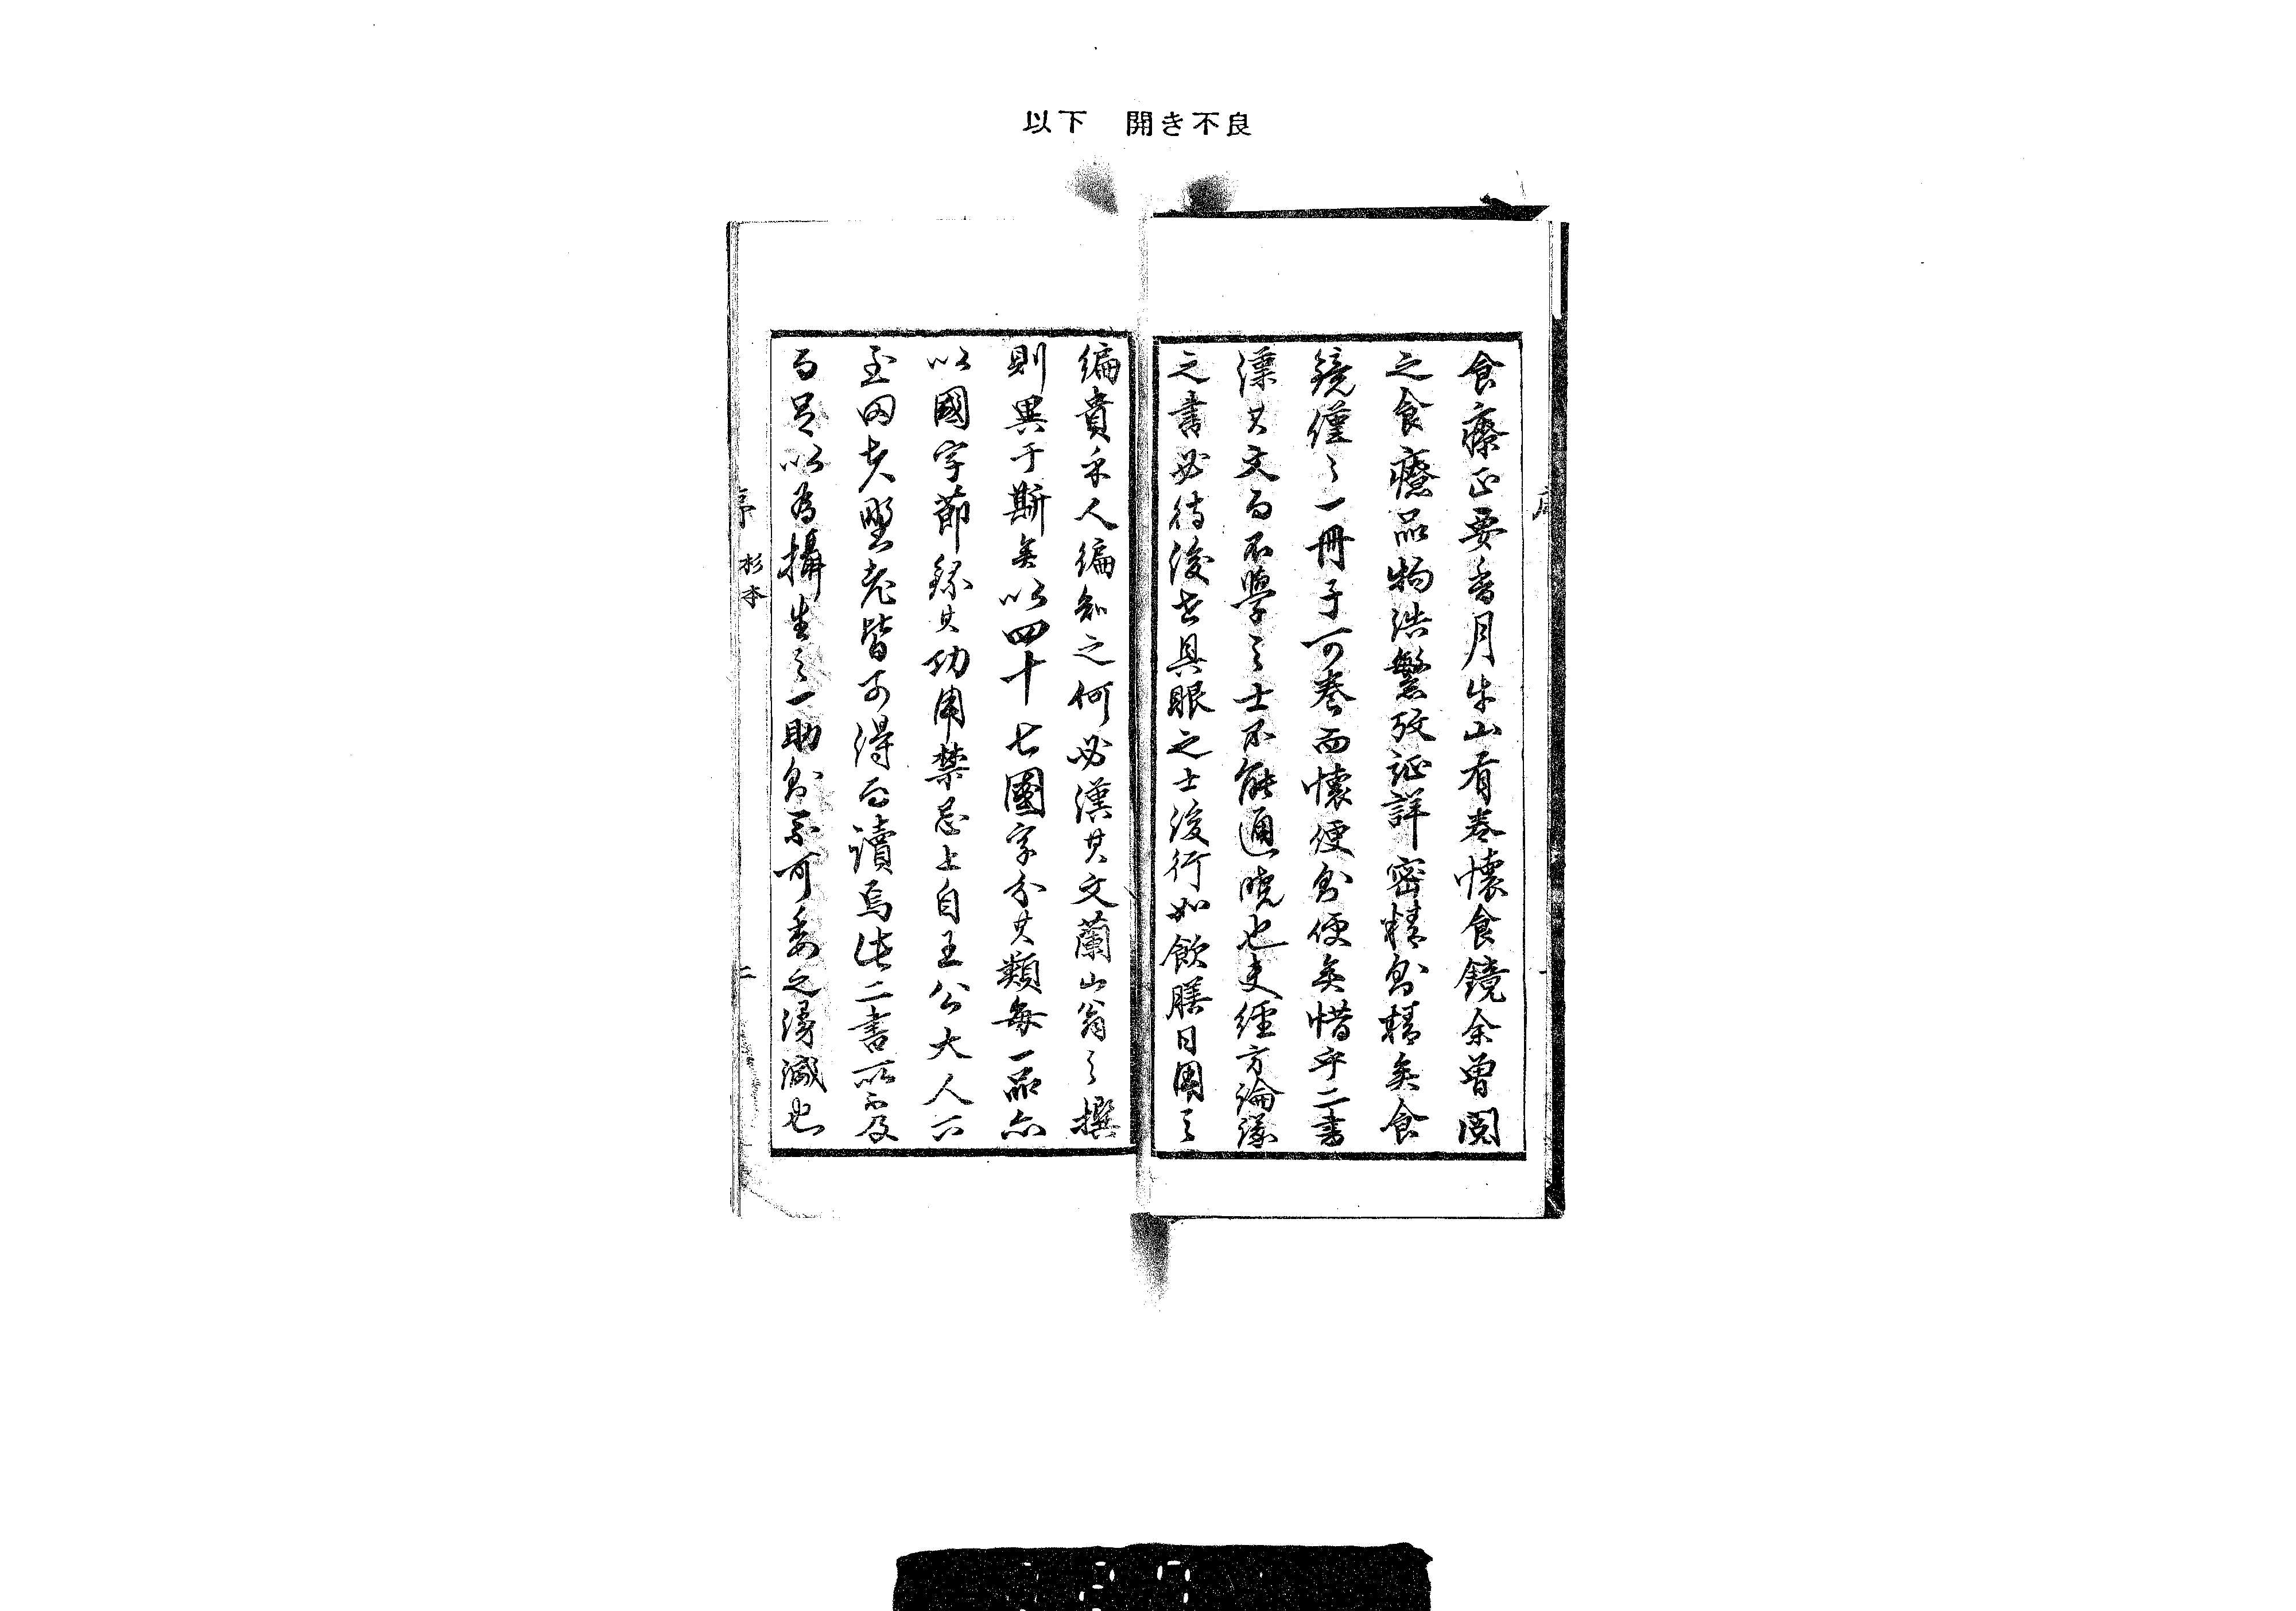 以下　開き不良
食療正要香月牛山有巻懐食鏡余曽閲
之食療品物浩繁攷証詳密精則精矣食
鏡僅々一冊子可巻而懐便則便矣惜乎二書
漢其文而不学之士不能通暁也夫経方論議
之書必待後世具眼之士後行如飲膳日用之
編貴乎人編知之何必漢其文蘭山翁之撰
則異于斯矣以四十七国字分其類毎一品亦
以國字節録其功用禁忌上自王公大人下
至田夫野老皆可得而読焉此二書所不及
而足以為摂生之一助則不可委之湮滅也
序
杉本
二
序